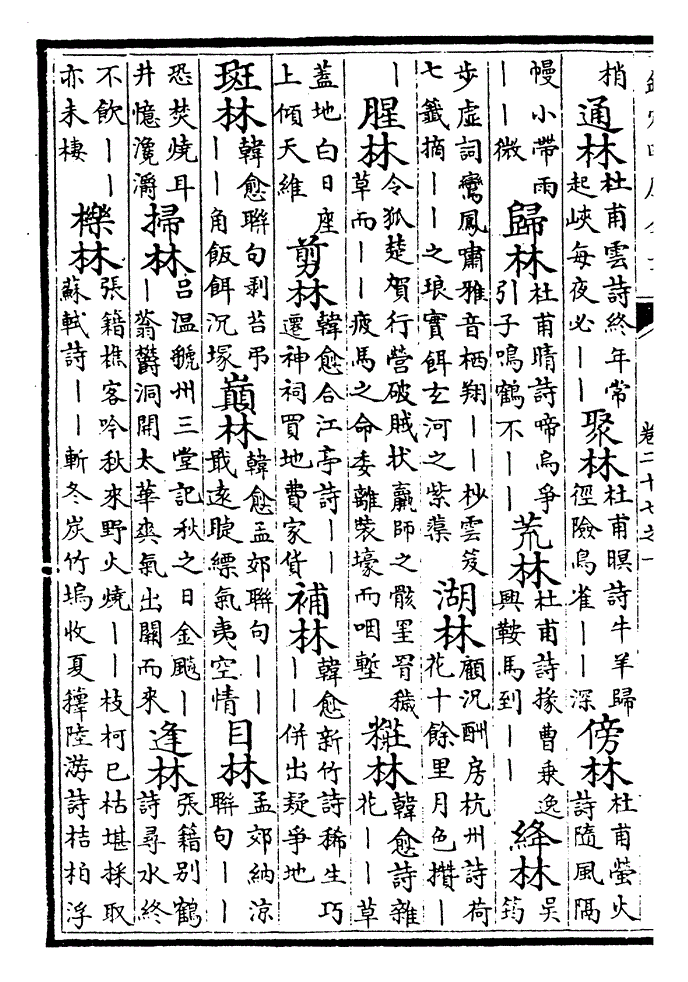 欽定四庫全書
卷二十七之一
梢
通林
杜甫雲詩終年常
起峽每夜必丨丨
聚林
杜甫暝詩牛羊歸
徑險鳥雀丨丨深
傍林
杜甫螢火
詩隨風隔
幔小帶雨
丨丨微
歸林
杜甫晴詩啼烏爭
引子鳴鶴不丨丨
荒林
杜甫詩掾曹乗逸
興鞍馬到丨丨
絳林
吳
筠
步虛詞鸞鳳嘯雅音栖翔丨丨杪雲笈
七籤摘丨丨之琅實餌玄河之紫蕖
湖林
顧況酬房杭州詩荷
花十餘里月色攢丨
丨
腥林
令狐楚賀行營破賊狀羸師之骸罣罥穢
草而丨丨疲馬之命委離裝壕而咽塹
粧林
韓愈詩雜
花丨丨草
蓋地白日座
上傾天維
剪林
韓愈合江亭詩丨丨
遷神祠買地費家貨
補林
韓愈新竹詩稀生巧
丨丨併出疑爭地
斑林
韓愈聯句剥苔弔
丨丨角飯餌沉塚
巔林
韓愈孟郊聯句丨丨
戢逺睫縹氣夷空情
目林
孟郊納涼
聯句丨丨
恐焚燒耳
井憶瀺灂
掃林
吕温虢州三堂記秋之日金颷丨
丨蓊欝洞開太華爽氣出關而來
逢林
張籍别鶴
詩尋水終
不飲丨丨
亦未棲
櫟林
張籍樵客吟秋來野火燒丨丨枝柯已枯堪採取
蘇軾詩丨丨斬冬炭竹塢收夏籜陸游詩桔柏浮